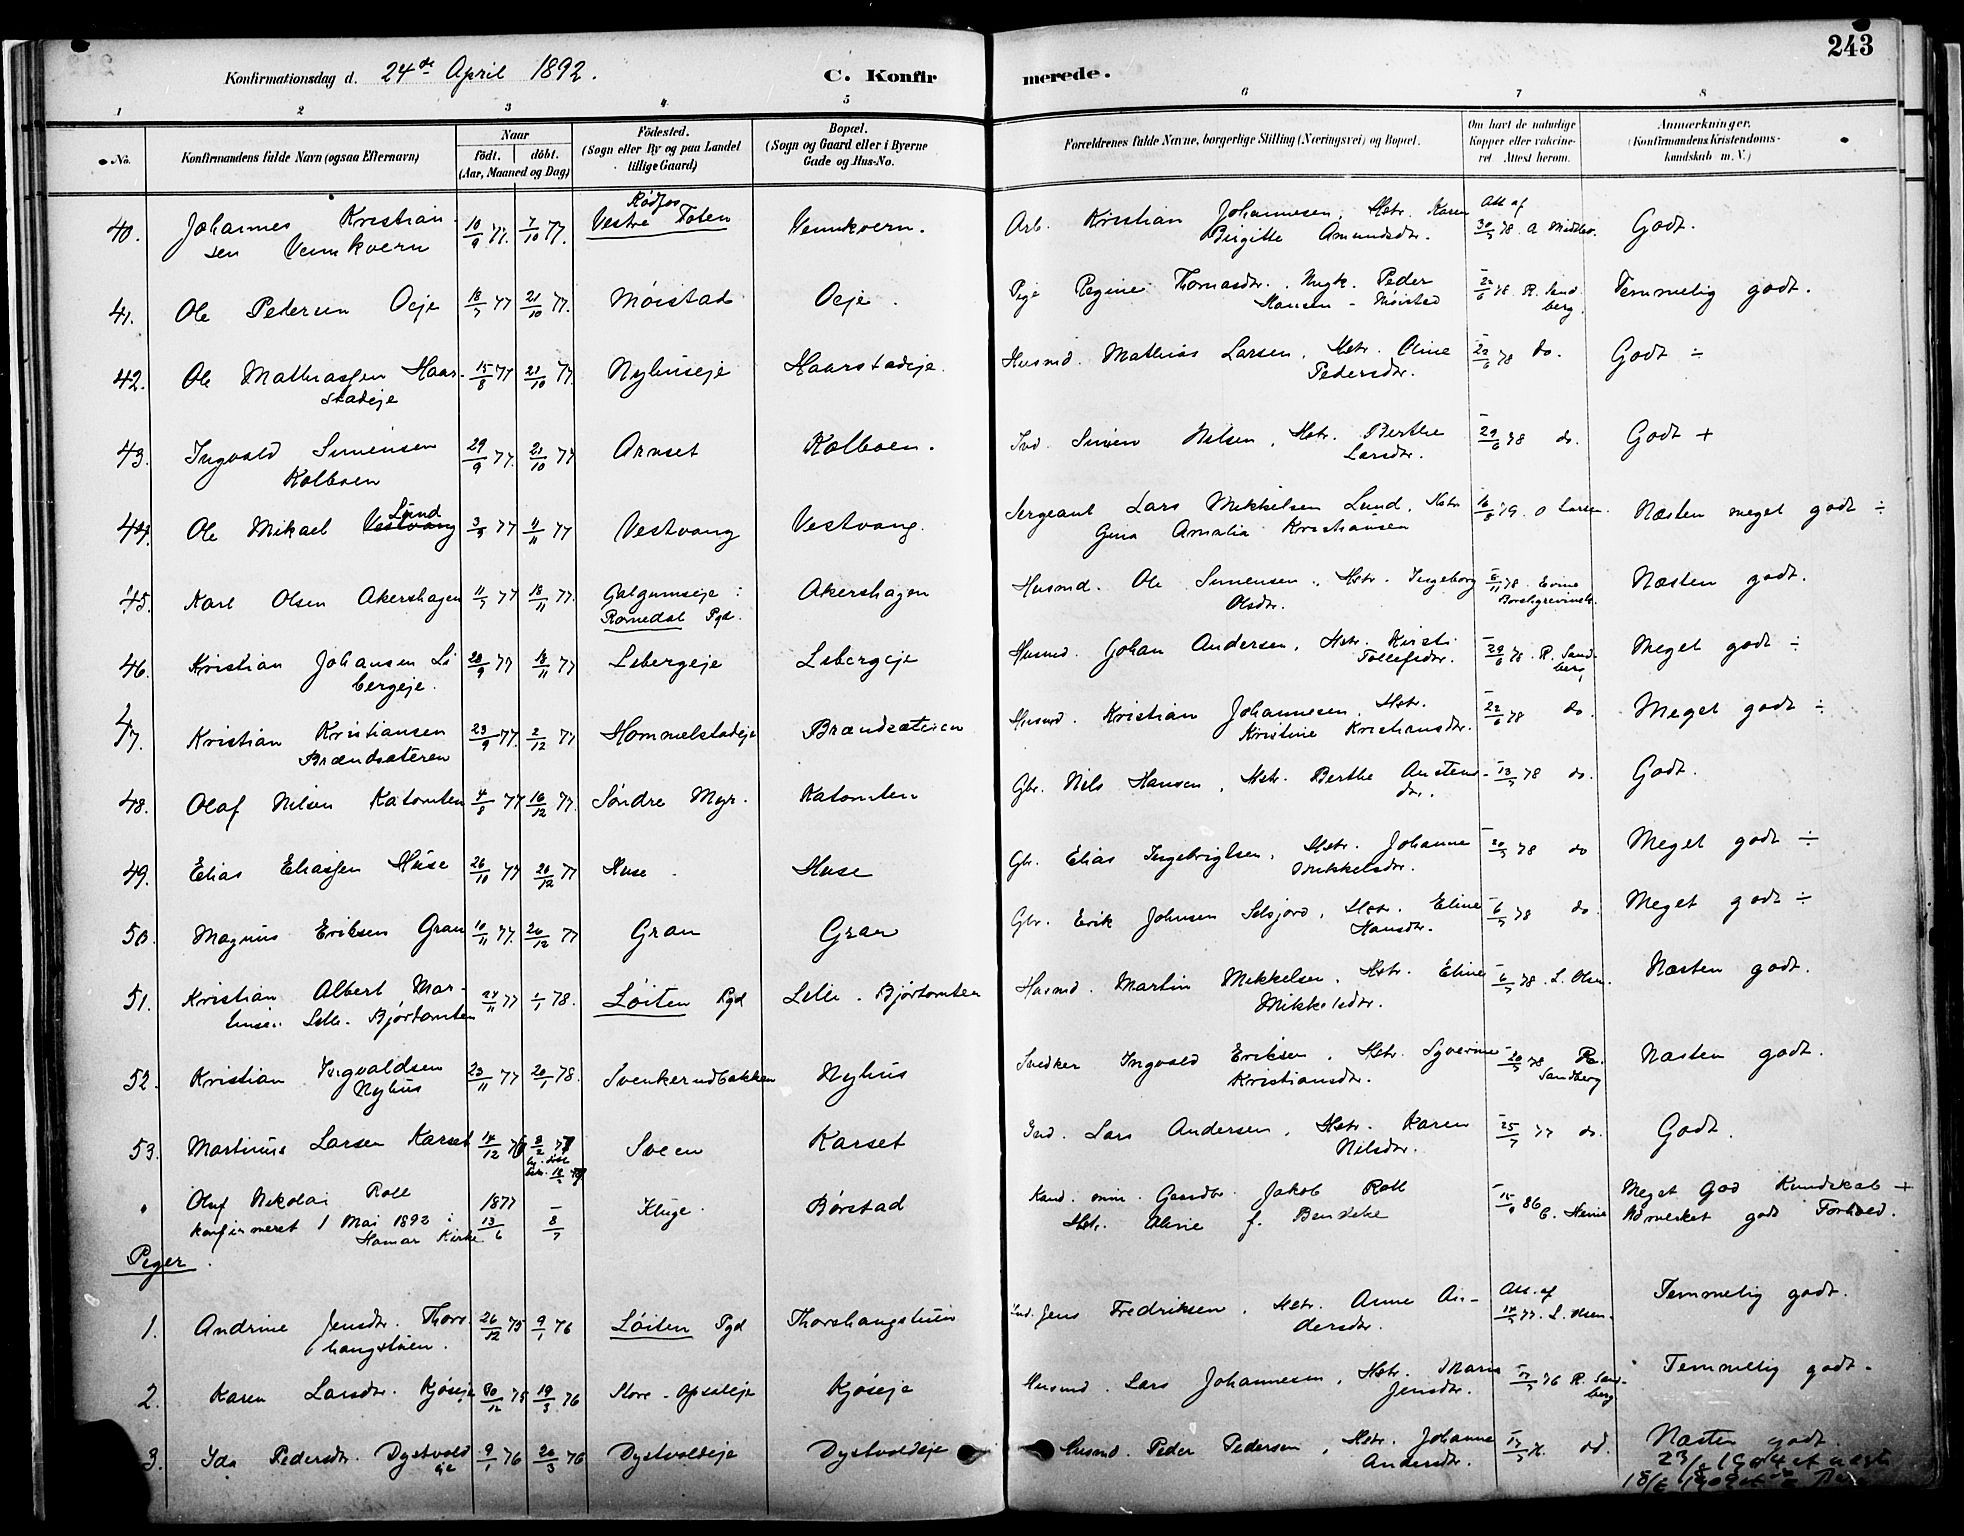 243
Konfirmationsdag d. 24de April 1892. C. Konfirmerede.
1 2 3 4 5 6 7 8
No. Konfirmandens fulde Navn (ogsaa Efternavn) Naar födt. döbt. (Aar, Maaned og Dag) Födested. (Sogn eller By og paa Landet tillige Gaard) Bopæl. (Sogn og Gaard eller i Byerne Gade og Hus-No. Forældrenes fulde Navne, borgerlige Stilling (Næringsvei) og Bopæl. Om havt de naturlige Kopper eller vakcineret. Attest herom. Anmærkninger. (Konfirmandens Kristendomskundskab m. V.)
40. Johannes Kristiansen Vennkvern 10/9 77. 7/10 77. Rødfos Vestre Toten Vennkvern. Arb. Kristian Johannesen, Hstr. Karen Birgitte Amundsdtr. Att af 30/5 78. Godt.
41. Ole Pedersen Oeje 18/7 77 21/10 77. Möistad Oeje. Pige Regine Thomasdtr. Ungk. Peder Hansen - Möistad 22/6 78 R. Sandberg Temmelig godt.
42. Ole Mathiassen Haarstadeje 15/8 77 21/10 77. Nyhuseje Haarstadeje. Husmd. Mathias Larsen, Hstr. Oline Pedersdtr. 22/6 78 do. Godt ÷
43. Ingvald Simensen Kolboen 29/9 77. 21/10 77 Arnset Kolboen. Ind. Simen Nilsen, Hstr. Berthe Larsdtr. 29/6 78 do. Godt +
44. Ole Mikael Vestvang Lund 3/9 77 11/11 77 Vestvang Vestvang. Sergeant Lars Mikkelsen Lund, Hstr Gina Amalia Kristiansen O Larsen Næsten meget godt ÷
45. Karl Olsen Akershagen 11/7 77 18/11 77. Galgumseje i Romedal Pgd. Akershagen Husmd. Ole Simensen, Hstr. Ingeborg Olsdtr. 78. Næsten godt.
46. Kristian Johansen Libergeje. 20/9 77 18/11 77 Libergeje Libergeje Husmd. Johan Andersen, Hstr. Kirsti Tollefsdtr. 29/6 78. R. Sandberg Meget godt ÷
47. Kristian Kristiansen Brændsæteren 23/9 77. 2/12 77 Hommelstadeje Brændsæteren Husmd. Kristian Johannesen, Hstr. Kristine Kristiansdtr. 22/6 78 do. Meget godt ÷
48. Olaf Nilsen Katomten 4/8 77 16/12 77. Söndre Myr. Katomten Gbr. Nils Hansen, Hstr. Berthe Austensdtr. 13/7 78 do. Godt.
49. Elias Eliassen Huse 26/10 77 26/12 77 Huse. Huse Gbr. Elias Ingebrigtsen, Hstr. Johanne Mikkelsdtr. 20/7 78 do Meget godt ÷
50. Magnus Eriksen Gran 10/11 77. 26/12 77 Gran Gran Gbr. Erik Johnsen Selsjord, Hstr. Eline Hansdtr. 6/7 78 do. Meget godt ÷
51. Kristian Albert Martinsen Lille-Bjørtomten 24/11 77 1/1 78. Löiten Pgd Lille-Bjørtomten Husmd. Martin Mikkelsen, Hstr. Eline Mikkelsdtr. 6/7 78. L. Olsen. Næsten godt.
52. Kristian Ingvaldsen Nyhus 23/11 77 20/1 78. Svenkerudbakken Nyhus Snedker Ingvald Eriksen, Hstr. Syverine Kristiansdtr. 20/7 78 R. Sandberg Næsten godt.
53. Martinus Larsen Karset 14/12 76 Sveen Karset Ind. Lars Andersen, Hstr. Karen Nilsdtr. 25/7 77 do. Godt.
Oluf Nikolai Roll konfirmeret 1 Mai 1892 i Hamar Kirke 1877 13/6 – 8/7 Kluge. Børstad Kand. min. Gaardbr. Jakob Roll Hstr. Aline f. 15/9 86 Meget God Kundskab + Udmærket godt Forhold.
Piger.
1. Andrine Jensdtr. Thorshaugstuen. 26/12 75 9/1 76 Löiten Pgd Thorshaugstuen Ind. Jens Fredriksen, Hstr. Anne Andersdtr. Att. af 77. L. Olsen. Temmelig godt.
2. Karen Larsdtr. Kjöseje 30/12 75 19/3 76 Store-Opsaleje Kjöseje Husmd. Lars Johannesen, Hstr. Maria Jensdtr. 17/7 76 R. Sandberg Temmelig godt.
3. Ida Pedersdtr. Dystvoldeje 9/1 76 26/3 76 Dystvoldeje Dystvoldeje Husmd. Peder Pedersen, Hstr. Johanne Andersdtr. Næsten godt.